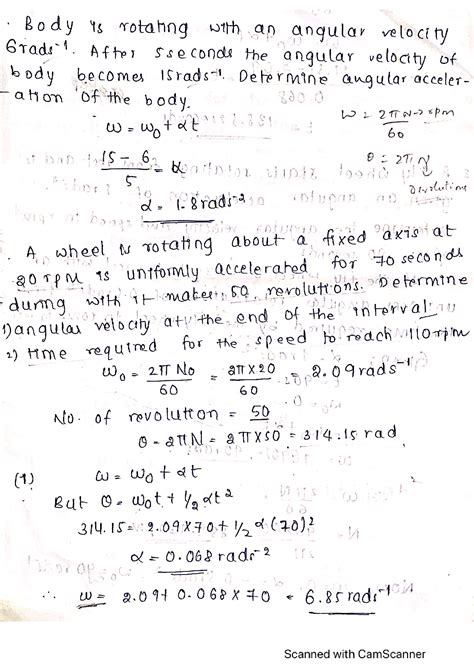 Body is rotating with an angular velocity
6rads⁻¹. After 5seconds the angular velocity of
body becomes 15rads⁻¹. Determine angular acceler-
-ation of the body.
ω = ω₀ + αt
ω = 2πN→rpm / 60
15 - 6 / 5 = α
θ = 2πN
α = 1.8rads⁻²
A wheel is rotating about a fixed axis at
20rpm is uniformly accelerated for 70seconds
during with it makes 50 revolutions. Determine
1)angular velocity at the end of the interval
2) time required for the speed to reach 110rpm
ω₀ = 2πN₀ / 60 = 2π×20 / 60 = 2.09rads⁻¹
No. of revolution = 50
θ = 2πN = 2π×50 = 314.15 rad
(1) ω = ω₀ + αt
But θ = ω₀t + 1/2 αt²
314.15 = 2.09×70 + 1/2 α (70)²
α = 0.068 rads⁻²
∴ ω = 2.09+ 0.068×70 = 6.85rads⁻¹
Scanned with CamScanner